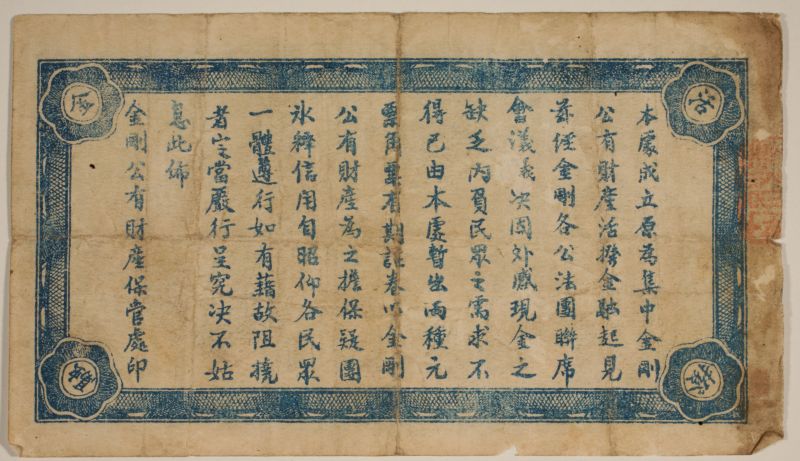 本處成立原為集中金剛
公有財產活撥金融起見
茲經金剛各公法團聯席
會議表决因外感現金之
缺乏內負民眾之需求不
得已由本處暫出兩種元
票角票有期証券以金剛
公有財產為之擔保疑團
氷釋信用自昭仰各民眾
一體遵行如有藉故阻撓
者定當嚴行呈究决不姑
息此佈
金剛公有財產保管處印
活